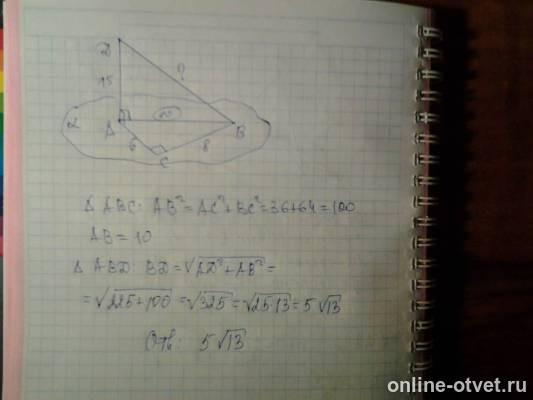 D
15
?
10
α
A
B
6
8
C
Δ ABC: AB² = AC² + BC² = 36 + 64 = 100
AB = 10
Δ ABD: BD = √AD² + AB² =
= √225 + 100 = √325 = √25·13 = 5√13
Отв: 5√13
online-otvet.ru